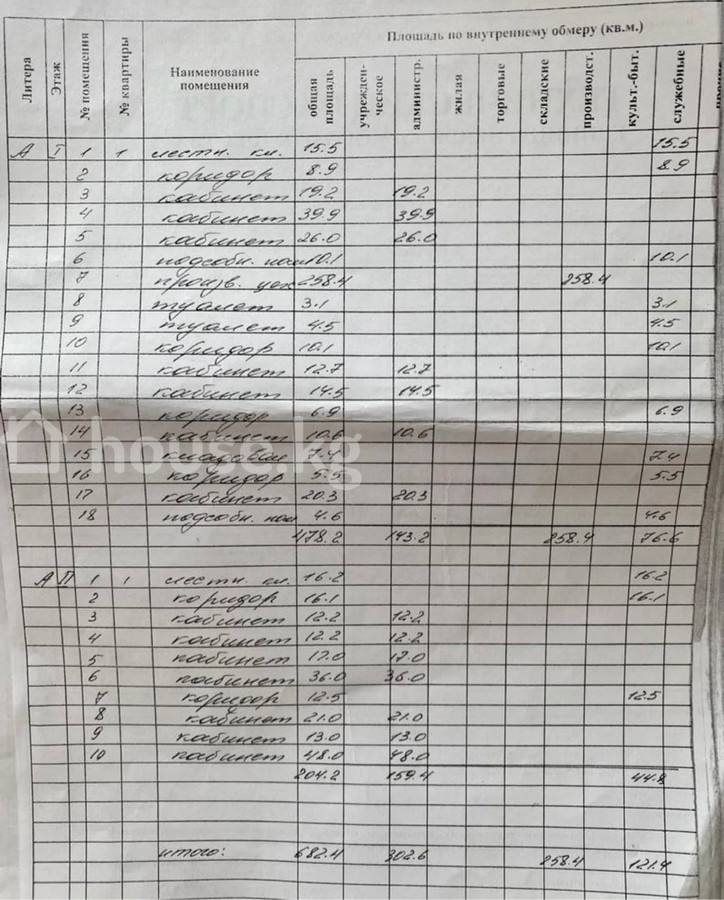 Площадь по внутреннему обмеру (кв.м.)
Литера Этаж № помещения № квартиры Наименование помещения общая площадь учрежден-ческое администр. жилая торговые складские производст. культ.-быт. служебные
А I 1 1 лестн. кл. 15.5 15.5
2 коридор 8.9 8.9
3 кабинет 19.2 19.2
4 кабинет 39.9 39.9
5 кабинет 26.0 26.0
6 подсобн. пом 10.1 10.1
7 произв. цех 258.4 258.4
8 туалет 3.1 3.1
9 туалет 4.5 4.5
10 коридор 10.1 10.1
11 кабинет 12.7 12.7
12 кабинет 14.5 14.5
13 коридор 6.9 6.9
14 кабинет 10.6 10.6
15 кладовая 7.4 7.4
16 коридор 5.5 5.5
17 кабинет 20.3 20.3
18 подсобн. пом 4.6 4.6
478.2 143.2 258.4 76.6
А II 1 1 лестн. кл. 16.2 16.2
2 коридор 16.1 16.1
3 кабинет 12.2 12.2
4 кабинет 12.2 12.2
5 кабинет 17.0 17.0
6 кабинет 36.0 36.0
7 коридор 12.5 12.5
8 кабинет 21.0 21.0
9 кабинет 13.0 13.0
10 кабинет 48.0 48.0
204.2 159.4 44.8
итого: 682.4 302.6 258.4 121.4
house.kg